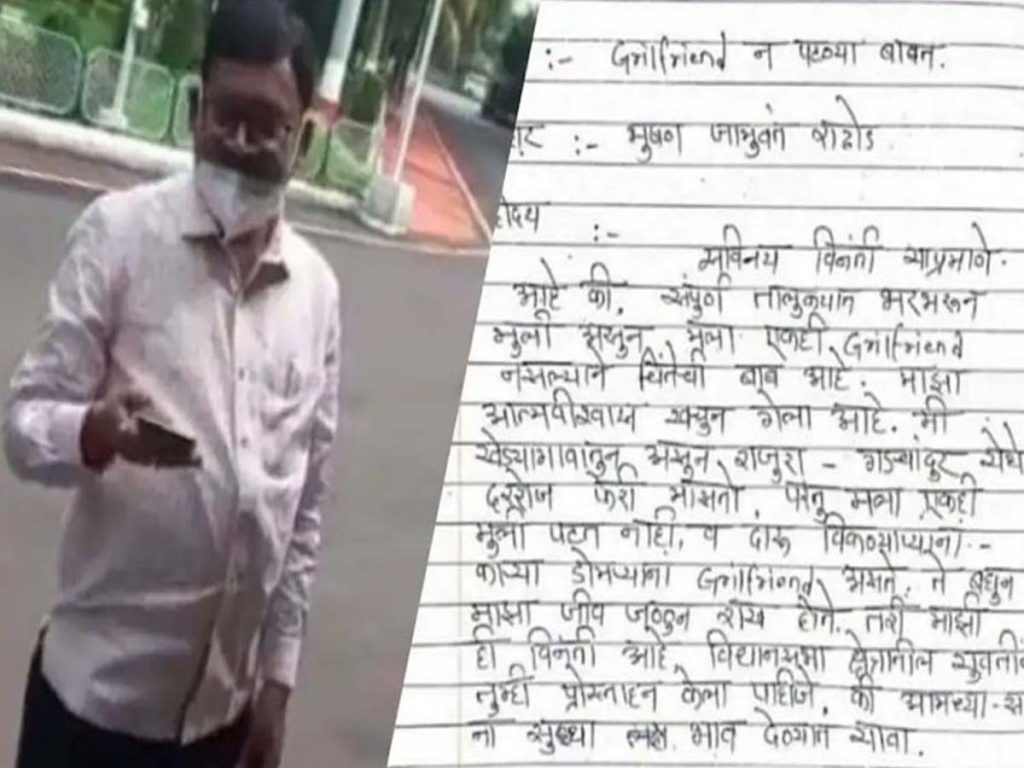 :- Grilfriend न पटण्या बाबत.
:- भुषण जांबुवंत राठोड
:-
सविनय विनंती याप्रमाणे
आहे की, संपुर्ण तालुक्यात भरभरून
मुली असुन मला एकही Grilfriend
नसल्याने चिंतेची बाब आहे. माझा
आत्मवीश्वास खचुन गेला आहे. मी
खेड्यागावातुन असुन राजुरा - गडचांदुर येथे
दररोज फेरी मारतो. परंतु मला एकही
मुली पटत नाही, व दारू विकण्याऱ्यांना -
काऱ्या डोमऱ्यांना Grilfriend असते. ते बघुन
माझा जीव जळुन राख होतो. तरी माझी
ही विनंती आहे विधानसभा क्षेत्रातील
तुम्ही प्रोत्साहन केला पाहिजे, की आमच्या-
ना सुध्दा भाव देण्यात यावा.